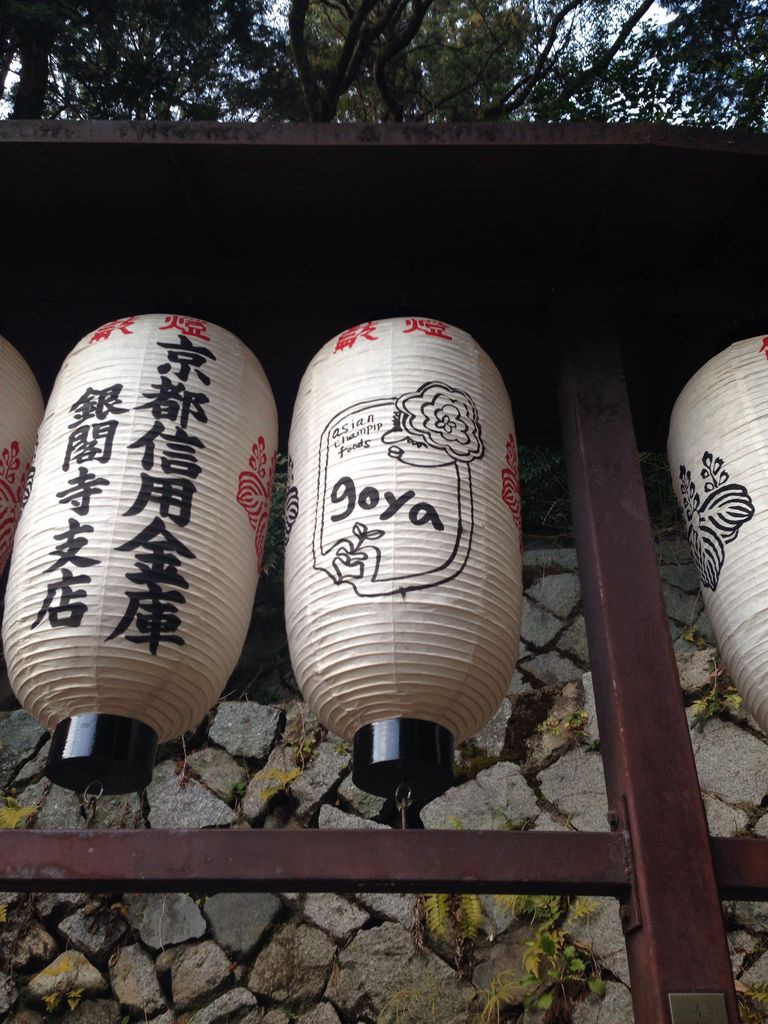 献燈
京都信用金庫
銀閣寺支店
献燈
asian
champip
foods
goya